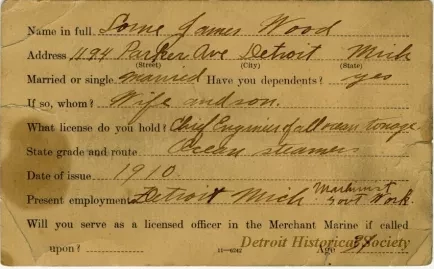 Name in full, Lorne James Wood
Address 1194 Parker Ave Detroit Mich
(Street) (City) (State)
Married or single? married Have you dependents? yes
If so, whom? Wife and son.
What license do you hold? Chief Engineer of all ocean tonage
State grade and route Ocean steamers
Date of issue 1910.
Present employment Detroit Mich Govt Work.
Will you serve as a licensed officer in the Merchant Marine if called
upon? 11—6242 Age
Detroit Historical Society